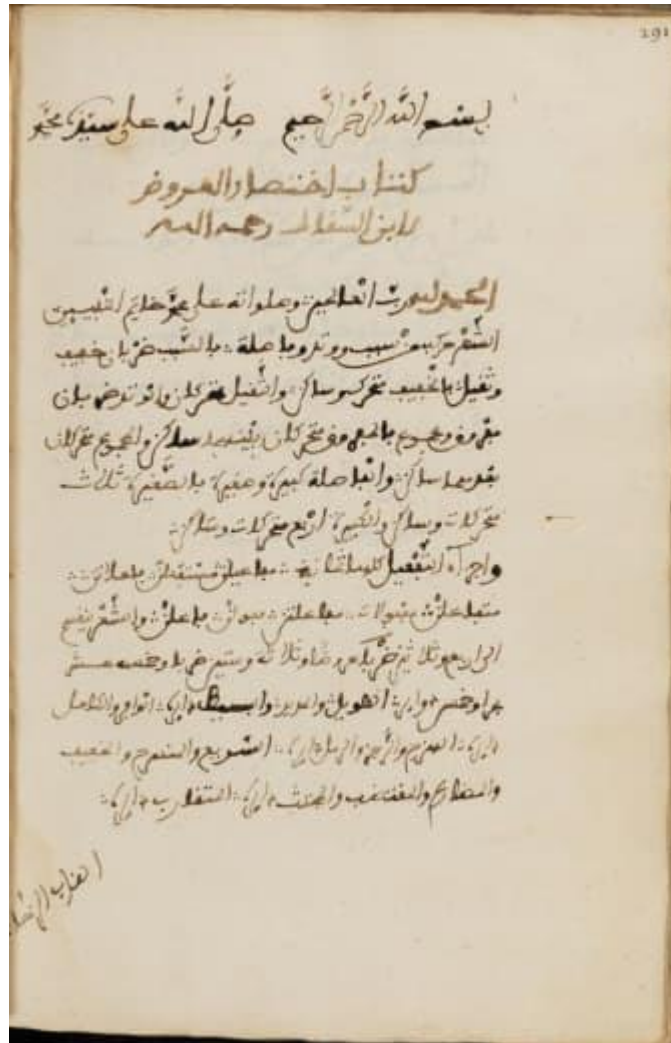 291
بسم الله الرحمن الرحيم صلى الله على سيدنا محمد
كتاب اختصار العروض
لابن السقاط رحمه الله
الحمد لله رب العالمين وصلواته على محمد خاتم النبيين
الشعر مركب من سبب ووتد وفاصلة فالسبب ضربان خفيف
وثقيل فالخفيف متحرك وساكن والثقيل متحركان والوتد ضربان
مفروق ومجموع فالمفروق متحركان بينهما ساكن والمجموع متحركان
بعدهما ساكن والفاصلة كبيرة وصغيرة فالصغيرة ثلاث
متحركات وساكن والكبيرة اربع متحركات وساكن
واجزاء التفعيل كلها ثمانية مفاعيلن مستفعلن فاعلاتن
متفاعلن مفعولات مفاعلتن فعولن فاعلن والشعر ينقسم
الى اربع وثلاثين عروضا وثلاثة وستين ضربا وخمسة عشر
بحرا وخمس دوائر الطويل والمديد والبسيط دائرة الوافر والكامل
دائرة الهزج والرجز والرمل دائرة السريع والمنسرح والخفيف
والمضارع والمقتضب والمجتث دائرة المتقارب دائرة